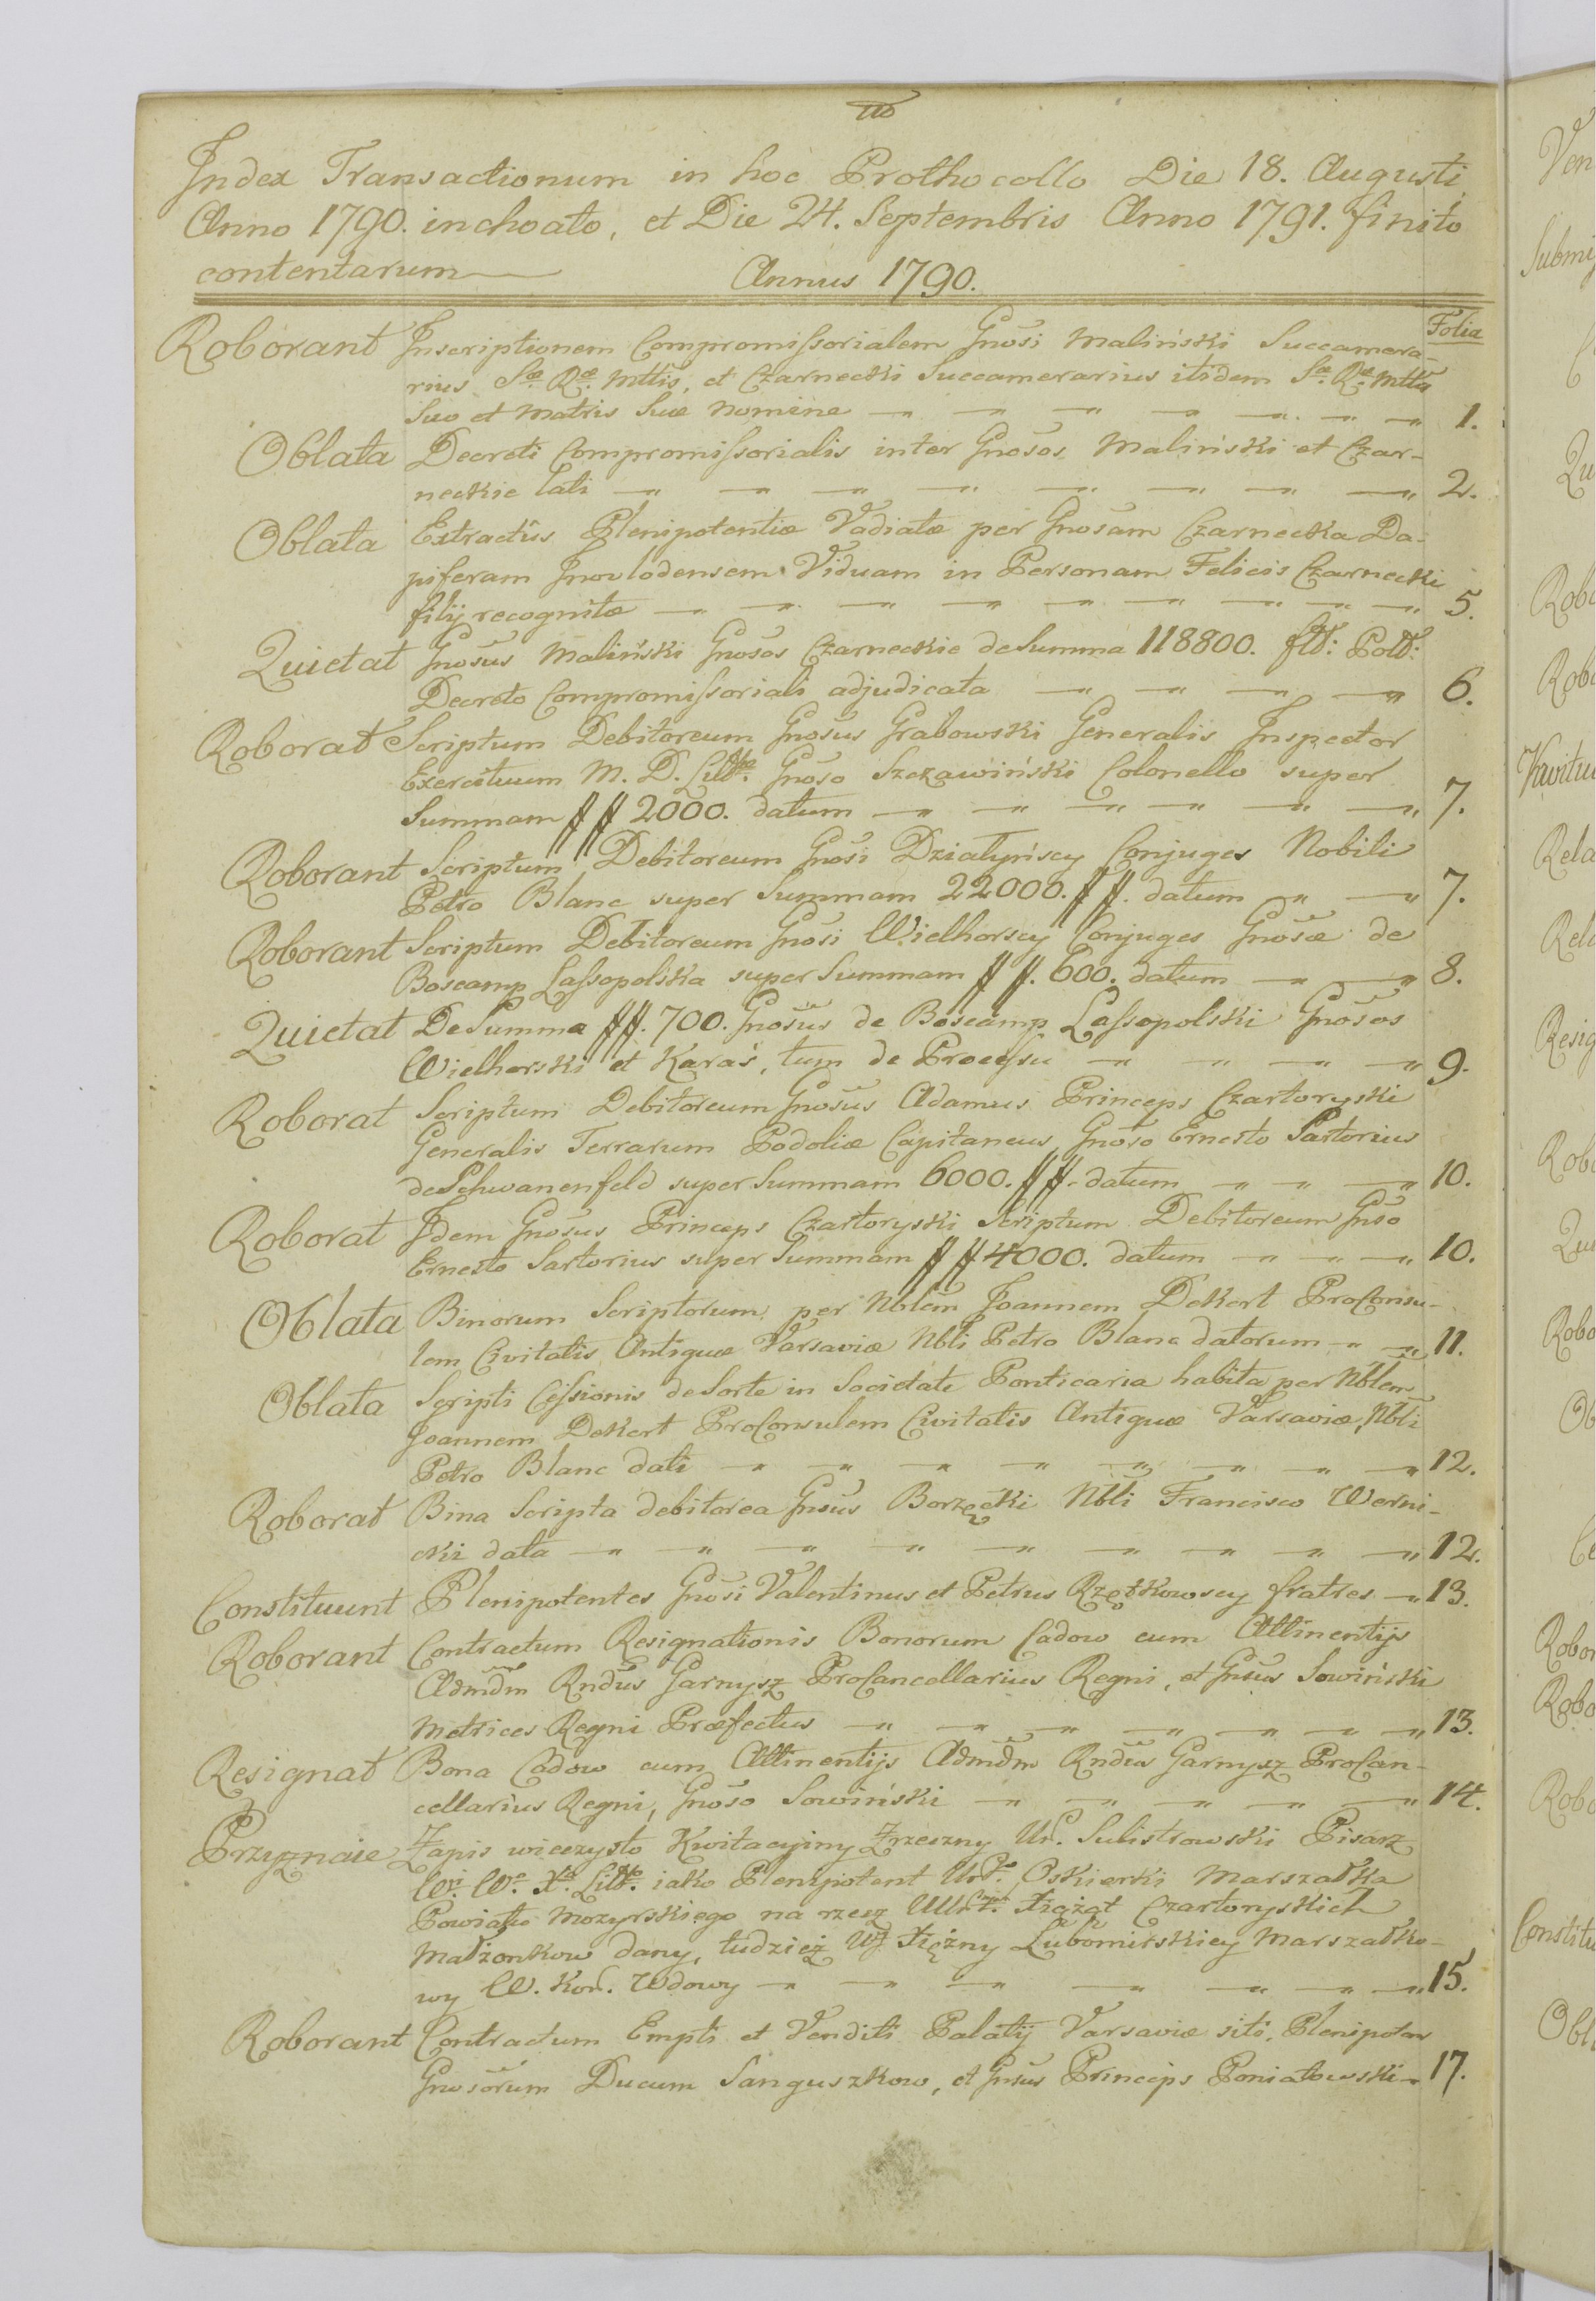 Index Transactionum in hoc Prothocollo Die 18. Augusti
Anno 1790. inchoato, et Die 24. Septembris Anno 1791. finito
contentarum
Annus 1790.
Folia
Roborant Inscriptionem Compromissorialem Gnosi Maliński Succamera-
rius Sæ. Ræ. Mttis, et Czarnecki Succamerarius itidem Sæ. Ræ. Mttis
Suo et Matris Suæ Nomine 1.
Oblata Decreti Compromissorialis inter Gnosos Maliński et Czar-
neckie lati 2.
Oblata Extractûs Plenipotentiæ Vadiatæ per Gnosam Czarnecka Da-
piferam Inovlodensem Viduam in Personam Felicis Czarnecki
filij recognitæ 5.
Quietat Gnosus Maliński Gnosos Czarneckie de Summa 118800. fld: Poll:
Decreto Compromissoriali adjudicata 6.
Roborat Scriptum Debitoreum Gnosus Grabowski Generalis Inspector
Exercituum M. D. Litt. Gnoso Szczawiński Colonello super
Summam ff 2000. datum 7.
Roborant Scriptum Debitoreum Gnosi Działyńscy Conjuges Nobili
Petro Blanc super Summam 22000. ff. datum 7.
Roborant Scriptum Debitoreum Gnosi Wielhorscy Conjuges Gnosæ de
Boscamp Lassopolska super Summam ff. 600. datum 8.
Quietat De Summa ff. 700. Gnosus de Boscamp Lassopolski Gnosos
Wielhorski et Karaś, tum de Processu 9.
Roborat Scriptum Debitoreum Gnosus Adamus Princeps Czartoryski
Generalis Terrarum Podoliæ Capitaneus Gnoso Ernesto Sartorius
de Schwanenfeld super Summam 6000. ff. datum 10.
Roborat Idem Gnosus Princeps Czartoryski Scriptum Debitoreum Gnso
Ernesto Sartorius super Summam ff 4000. datum 10.
Oblata Binorum Scriptorum per Nblem Joannem Dekert ProConsu-
lem Civitatis Antiquæ Varsaviæ Nbli Petro Blanc datorum 11.
Oblata Scripti Cessionis de Sorte in Societate Ponticaria habita per Nblem
Joannem Dekert ProConsulem Civitatis Antiquæ Varsaviæ, Nbli
Petro Blanc dati 12.
Roborat Bina Scripta debitorea Gnsus Borzęcki Nbli Francisco Werni-
cki data 12.
Constituunt Plenipotentes Gnosi Valentinus et Petrus Rzętkowscy fratres 13.
Roborant Contractum Resignationis Bonorum Cadow cum Attinentijs
Admdm Rndus Garnysz ProCancellarius Regni, et Gnsus Sowiński
Metrices Regni Præfectus 13.
Resignat Bona Cadow cum Attinentijs Admdm Rndus Garnysz ProCan-
cellarius Regni, Gnoso Sowiński 14.
Przyznaie Zapis wieczysto Kwitacyiny Zrzeczny Ur. Sulistrowski Pisarz
W. W. X. Litt. iako Plenipotent Oskierki Marszałka
Powiatu Mozyrskiego na rzecz Xiążąt Czartoryskich
Małżonkow dany, tudzież Xiężny Lubomirskiey Marszałko-
wy W. Kor. Wdowy 15.
Roborant Contractum Empti et Venditi Palatij Varsaviæ siti, Plenipoten
Gnosorum Ducum Sanguszkow, et Gnsus Princeps Poniatowski 17.